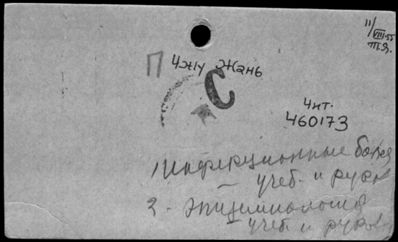 11/VIII-55
П Чжу Жань
С
Чит.
460173
1 Инфекционные бол
учеб. и руков
2 - Эпидемиология
учеб и руков